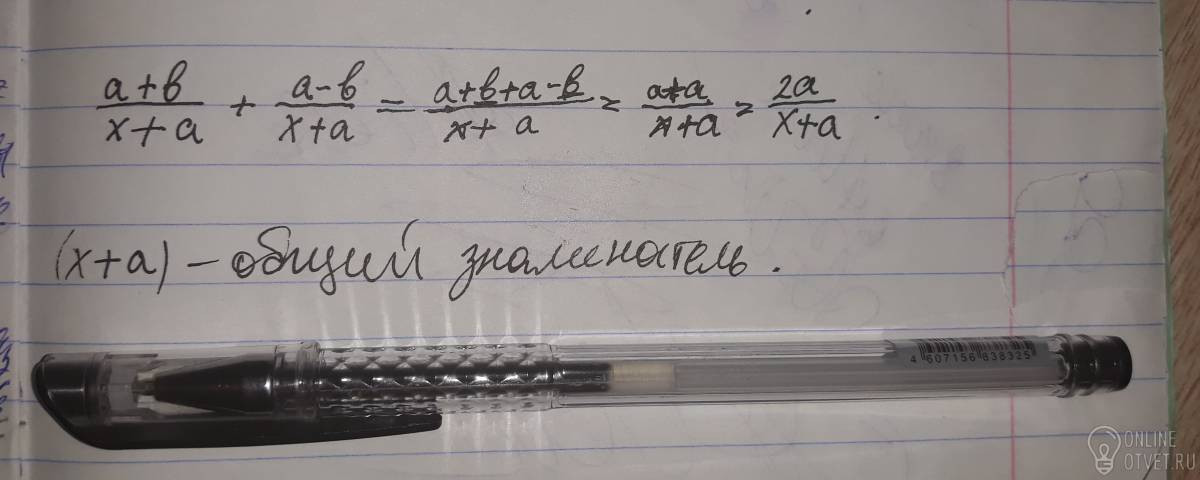 (a+b)/(x+a) + (a-b)/(x+a) = (a+b+a-b)/(x+a) = (a+a)/(x+a) = 2a/(x+a).
(x+a) – общий знаменатель.
4 607156 838325
ONLINE
OTVET.RU